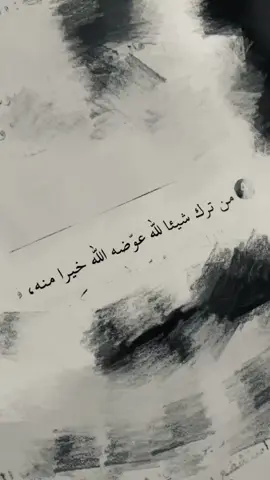 من ترك شيئا لله عوّضه الله خيرا منه،